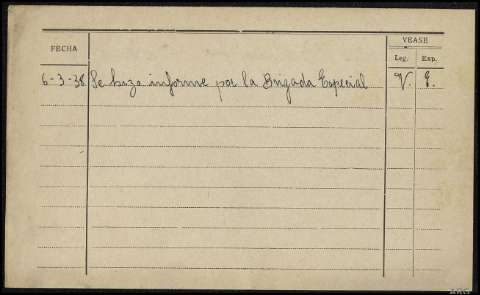 VEASE
FECHA
Leg. Exp.
6-3-38 Se hizo informe por la Brigada Especial V. E.